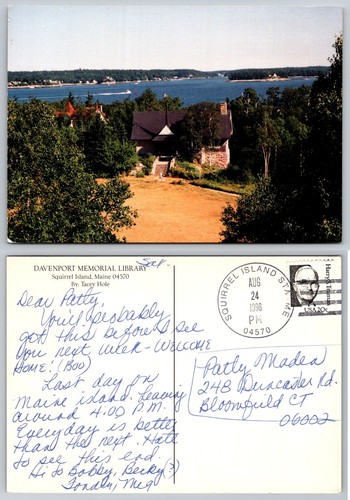 DAVENPORT MEMORIAL LIBRARY
Squirrel Island, Maine 04570
By: Tacey Hole
Sat.
Dear Patty,
You'll probably
get this before I see
you next week - WELCOME
HOME! (Boo)
Last day on
Maine island. Leaving
around 4:00 P.M.
Everyday is better
than the next. Hate
to see this end.
Hi to Bobby, Becky (?)
Fondly, Meg
SQUIRREL ISLAND STA. ME
AUG
24
1996
PM
04570
Harry S. Truman
USA 20c
Patty Madea
24B Duncaster Rd.
Bloomfield CT
06002